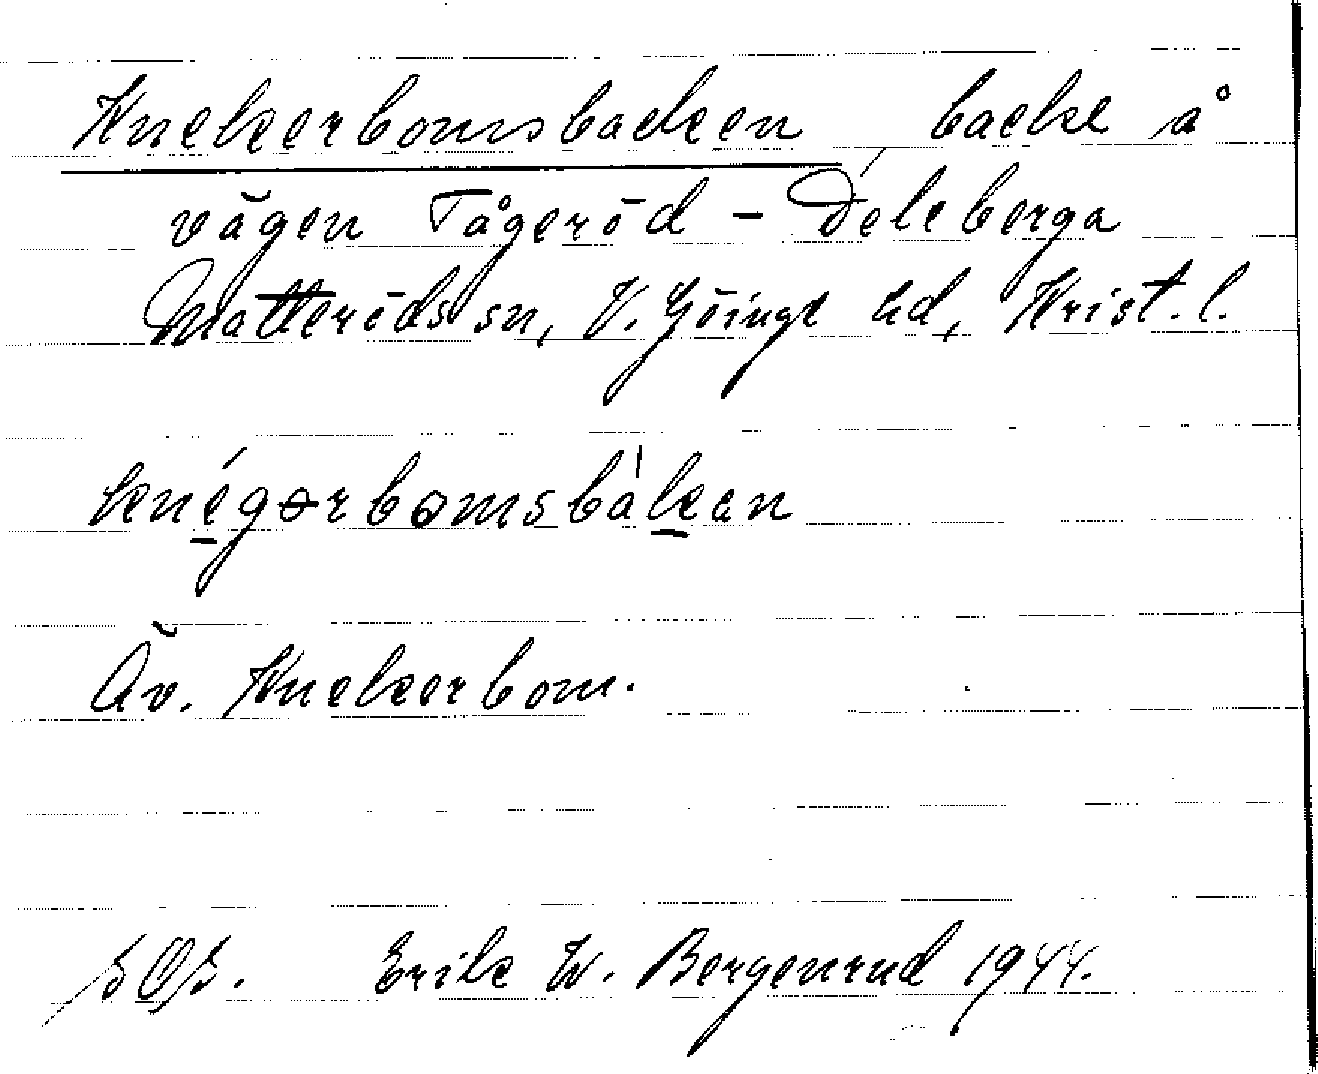 Kneckerbomsbacken, backe å
vägen Tågeröd - Deleberga
Matteröds sn, V. Göinge hd, Krist. l.
knégərbomsbàkan
Av. Kneckerbom.
Erik W. Bergenrud 1944.